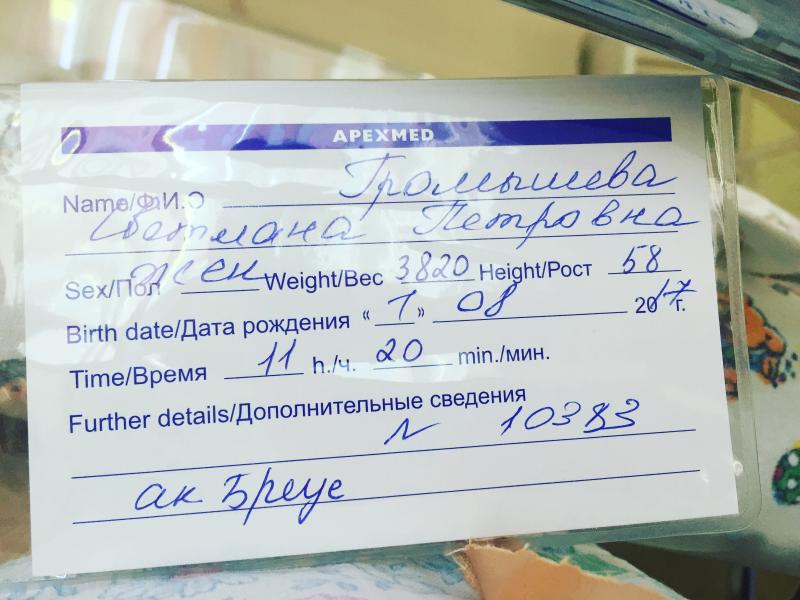 APEXMED
Name/Ф.И.О Громышева
Светлана Петровна
Sex/Пол жен Weight/Вес 3820 Height/Рост 58
Birth date/Дата рождения « 1 » 08 2017г.
Time/Время 11 h./ч. 20 min./мин.
Further details/Дополнительные сведения
N 10383
ак Бреус